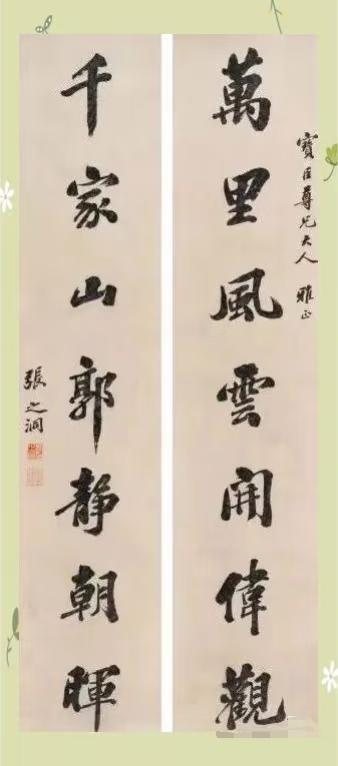 萬里風雲開偉觀
寶臣尊兄大人 雅正
千家山郭静朝暉
張之洞